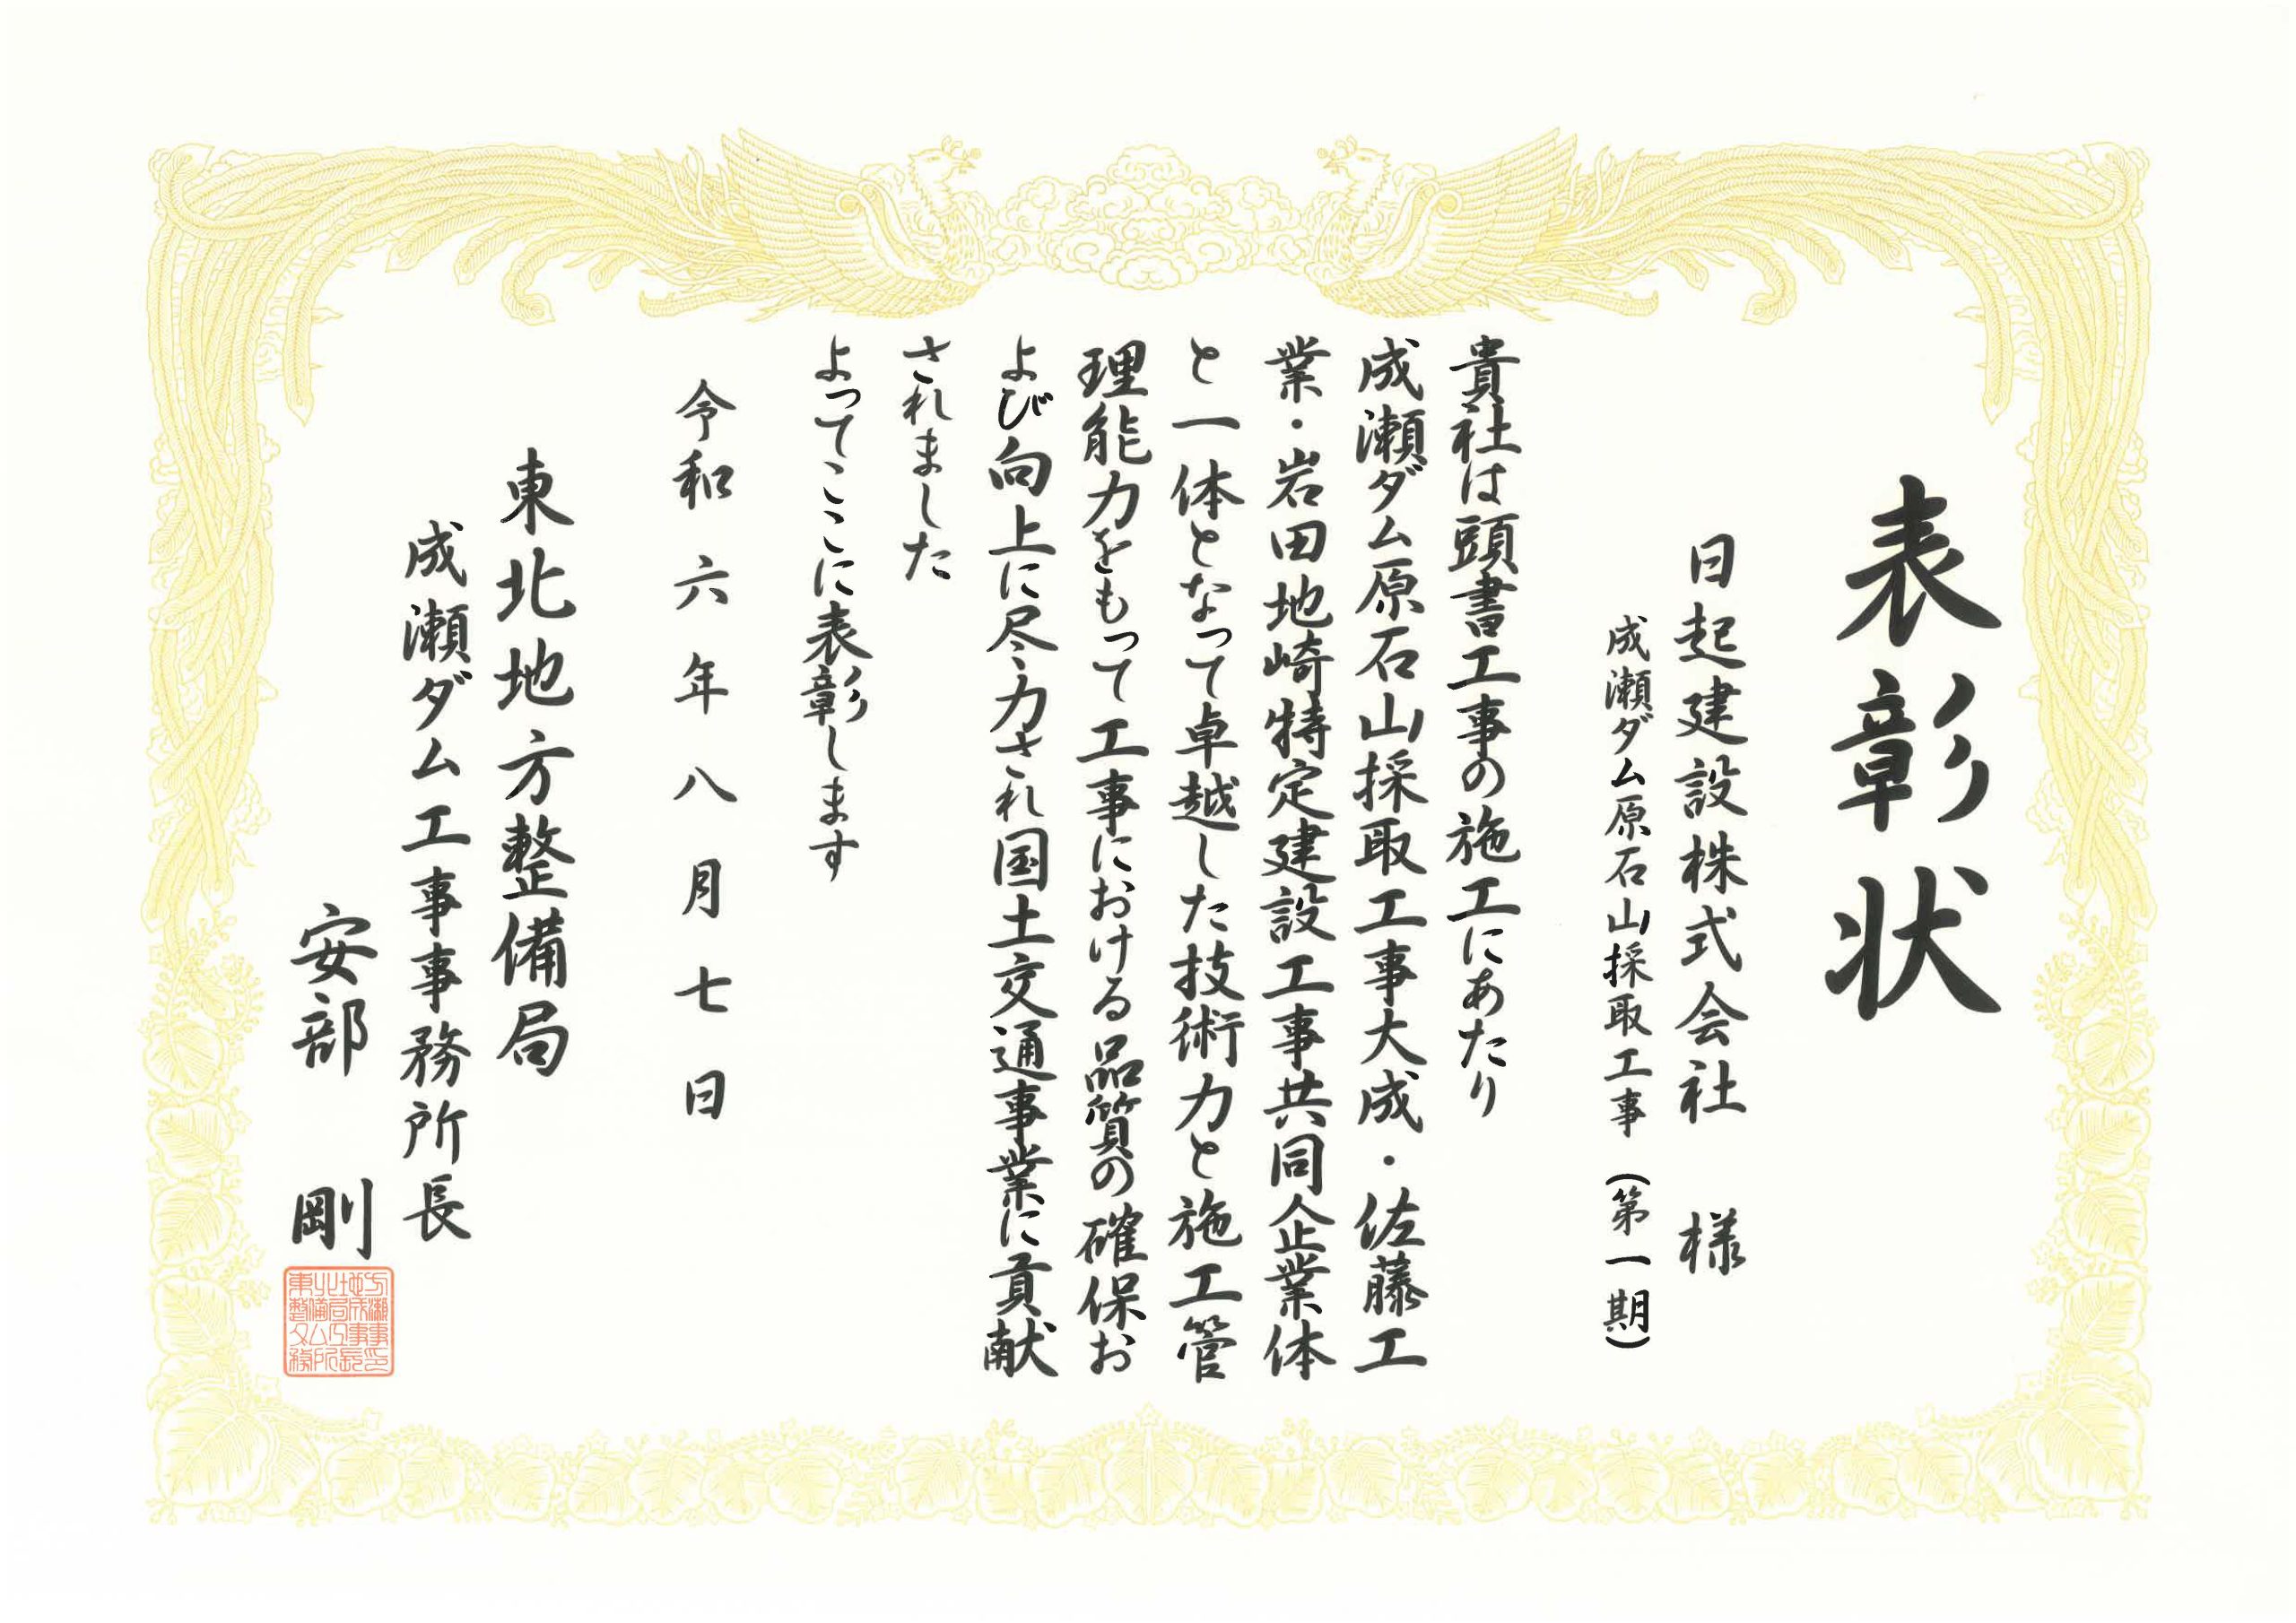 表彰状
日起建設株式会社　様
成瀬ダム原石山採取工事（第一期）
貴社は頭書工事の施工にあたり
成瀬ダム原石山採取工事大成・佐藤工
業・岩田地崎特定建設工事共同企業体
と一体となって卓越した技術力と施工管
理能力をもって工事における品質の確保お
よび向上に尽力され国土交通事業に貢献
されました
よってここに表彰します
令和六年八月七日
東北地方整備局
成瀬ダム工事事務所長
安部　剛
東北地方
整備局成瀬
ダム工事事
務所長印